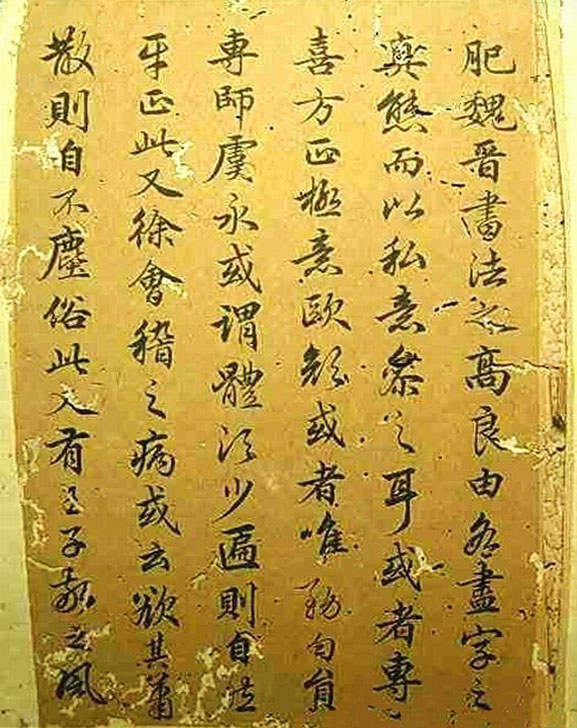 肥魏晉書法之高良由各盡字之
真態而以私意參之耳或者專
喜方正極意歐顏或者唯務勻員
專師虞永或謂體須少匾則自然
平正此又徐會稽之病或云欲其蕭
散則自不塵俗此又有王子敬之風